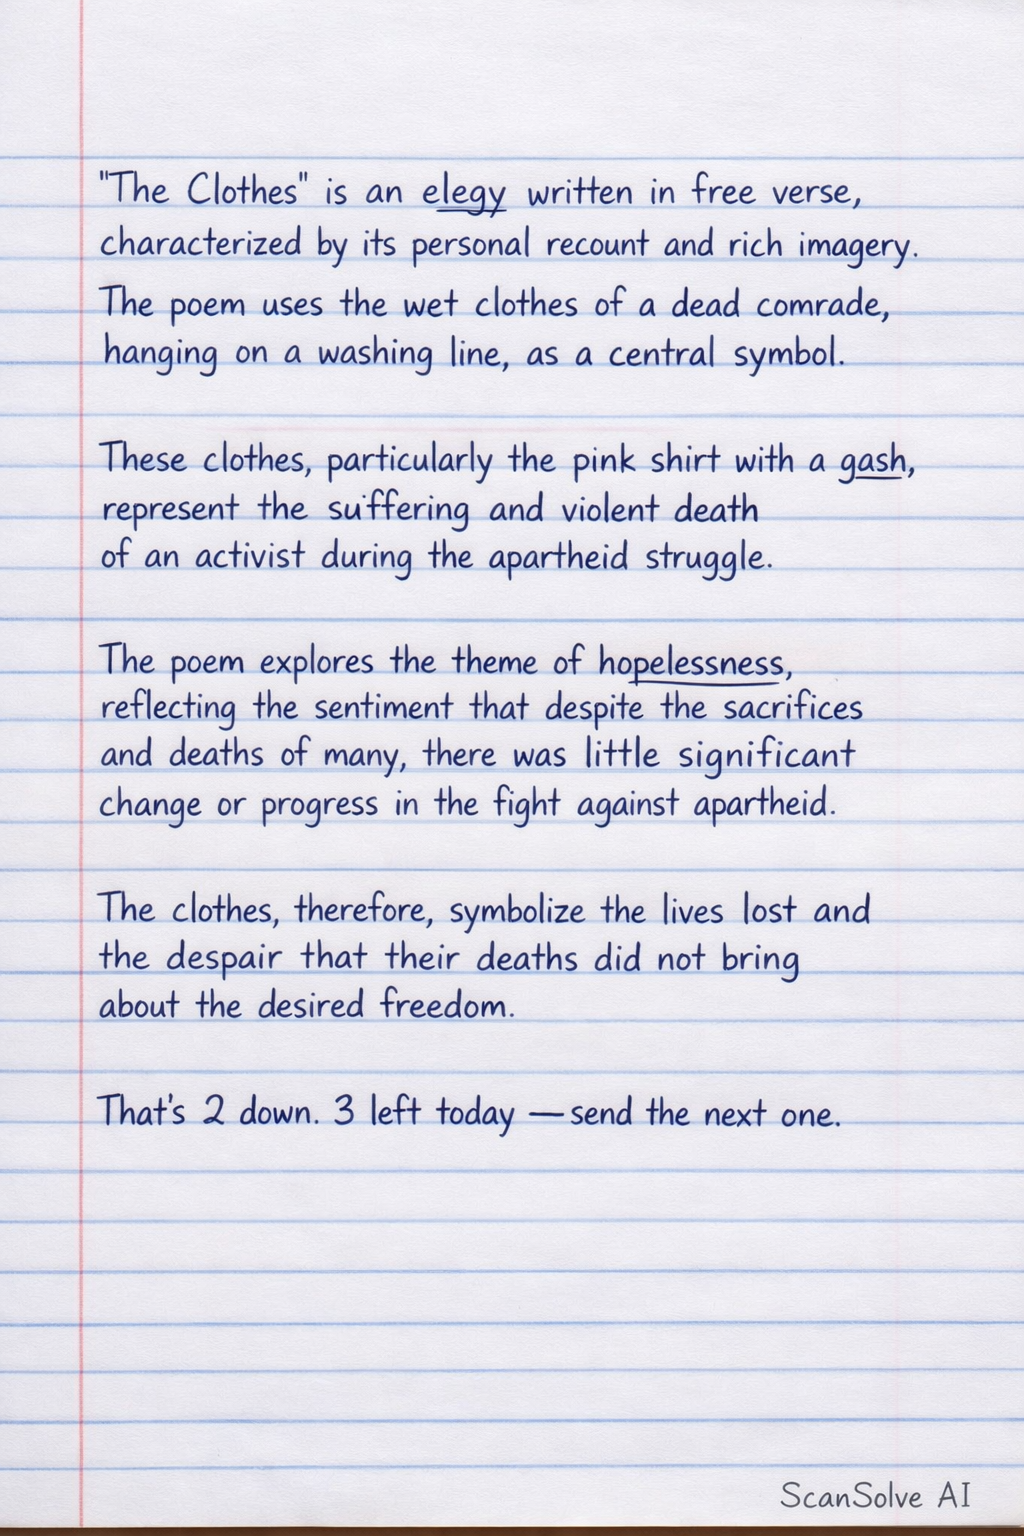 "The Clothes" is an elegy written in free verse,
characterized by its personal recount and rich imagery.
The poem uses the wet clothes of a dead comrade,
hanging on a washing line, as a central symbol.
These clothes, particularly the pink shirt with a gash,
represent the suffering and violent death
of an activist during the apartheid struggle.
The poem explores the theme of hopelessness,
reflecting the sentiment that despite the sacrifices
and deaths of many, there was little significant
change or progress in the fight against apartheid.
The clothes, therefore, symbolize the lives lost and
the despair that their deaths did not bring
about the desired freedom.
That's 2 down. 3 left today — send the next one.
ScanSolve AI